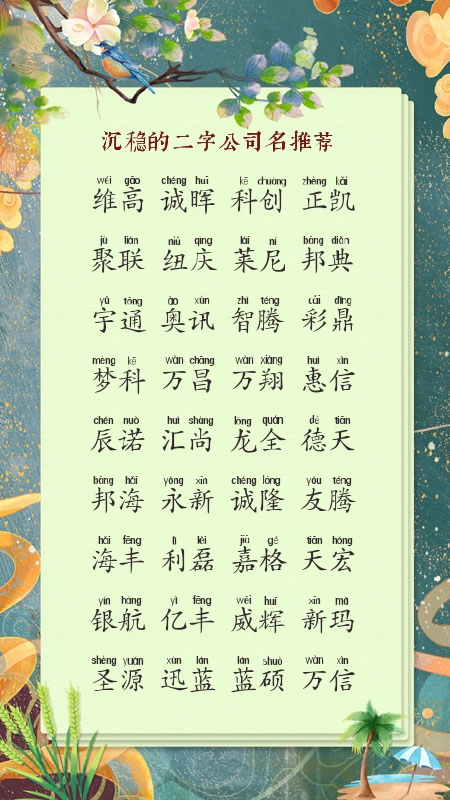 沉稳的二字公司名推荐
wéi gāo chéng huī kē chuàng zhèng kǎi
维高 诚晖 科创 正凯
jù lián niǔ qìng lái ní bāng diǎn
聚联 纽庆 莱尼 邦典
yǔ tōng ào xùn zhì téng cǎi dǐng
宇通 奥讯 智腾 彩鼎
mèng kē wàn chāng wàn xiáng huì xìn
梦科 万昌 万翔 惠信
chén nuò huì shàng lóng quán dé tiān
辰诺 汇尚 龙全 德天
bāng hǎi yǒng xīn chéng lóng yǒu téng
邦海 永新 诚隆 友腾
hǎi fēng lì lěi jiā gé tiān hóng
海丰 利磊 嘉格 天宏
yín háng yì fēng wēi huī xīn mǎ
银航 亿丰 威辉 新玛
shèng yuán xùn lán lán shuò wàn xìn
圣源 迅蓝 蓝硕 万信